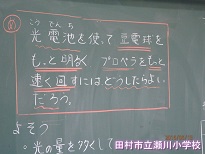 問
こうでんち
光電池を使って豆電球を
もっと明るく プロペラをもっと
速く回すにはどうしたらよい
だろう。
よそう
・光の量を多くして
田村市立瀬川小学校